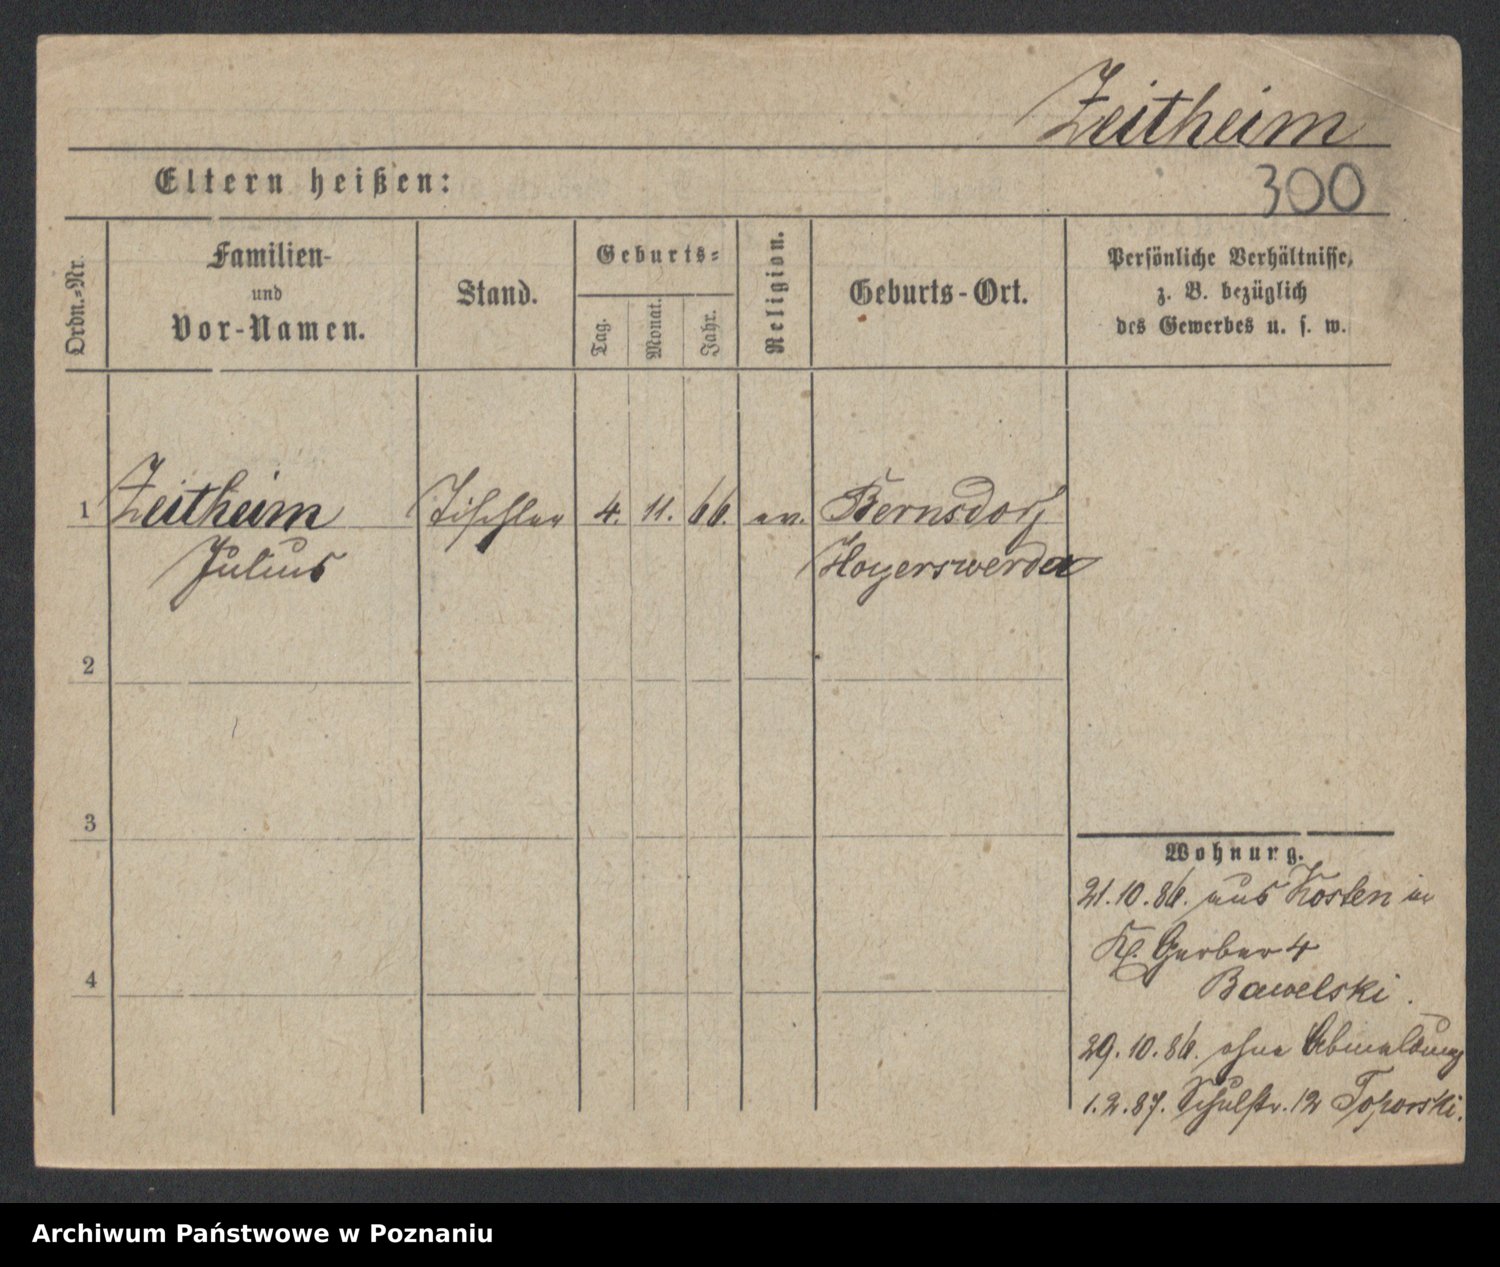 Zeitheim
Eltern heißen:
300
Ordn.-Nr.
Familien-
und
Vor-Namen.
Stand.
Geburts-
Tag.
Monat.
Jahr.
Religion.
Geburts-Ort.
Persönliche Verhältnisse,
z. B. bezüglich
des Gewerbes u. s. w.
1 Zeitheim Tischler 4. 11. 66. ev. Bernsdorf
Julius Hoyerswerda
2
3
4
Wohnung.
21.10.86. aus Kosten in
Kl. Gerber 4
Bawelski.
29.10.86. ohne Abmeldung
1.2.87. Schulstr. 12 Toporski.
Archiwum Państwowe w Poznaniu